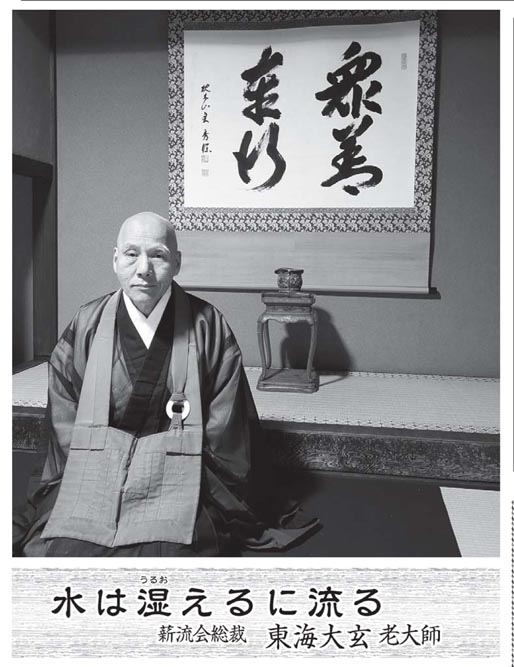 衆善
奉行
うるお
水は湿えるに流る
薪流会総裁 東海大玄 老大師